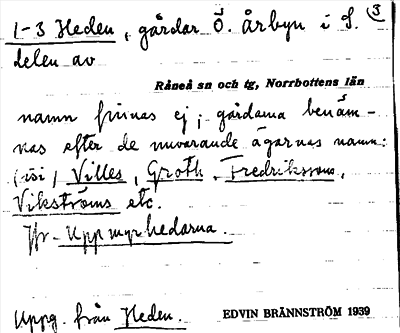 1-3 Heden, gårdar Ö. Årbyn i S. ③
delen av
Råneå sn och tg, Norrbottens län
namn finnas ej; gårdarna benäm-
nas efter de nuvarande ägarnas namn:
(isi) Villes, Groth, Fredrikssons,
Vikströms etc.
Jfr - Uppmyrhedarna.
Uppg. från Heden.
EDVIN BRÄNNSTRÖM 1939